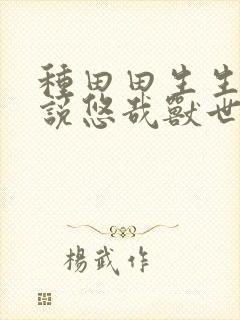 種田田生生
說悠哉獸世
楊武作